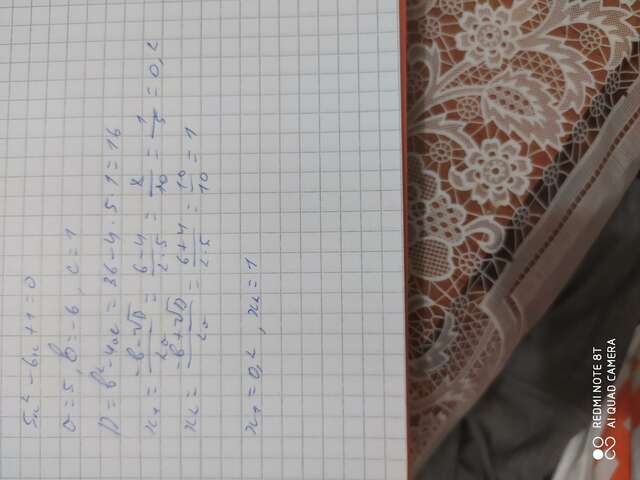 5x² - 6x + 1 = 0
a = 5, b = -6, c = 1
D = b² - 4ac = 36 - 4 · 5 · 1 = 16
x₁ = (-b - √D)/2a = (6 - 4)/(2 · 5) = 2/10 = 1/5 = 0,2
x₂ = (-b + √D)/2a = (6 + 4)/(2 · 5) = 10/10 = 1
x₁ = 0,2, x₂ = 1
REDMI NOTE 8T
AI QUAD CAMERA